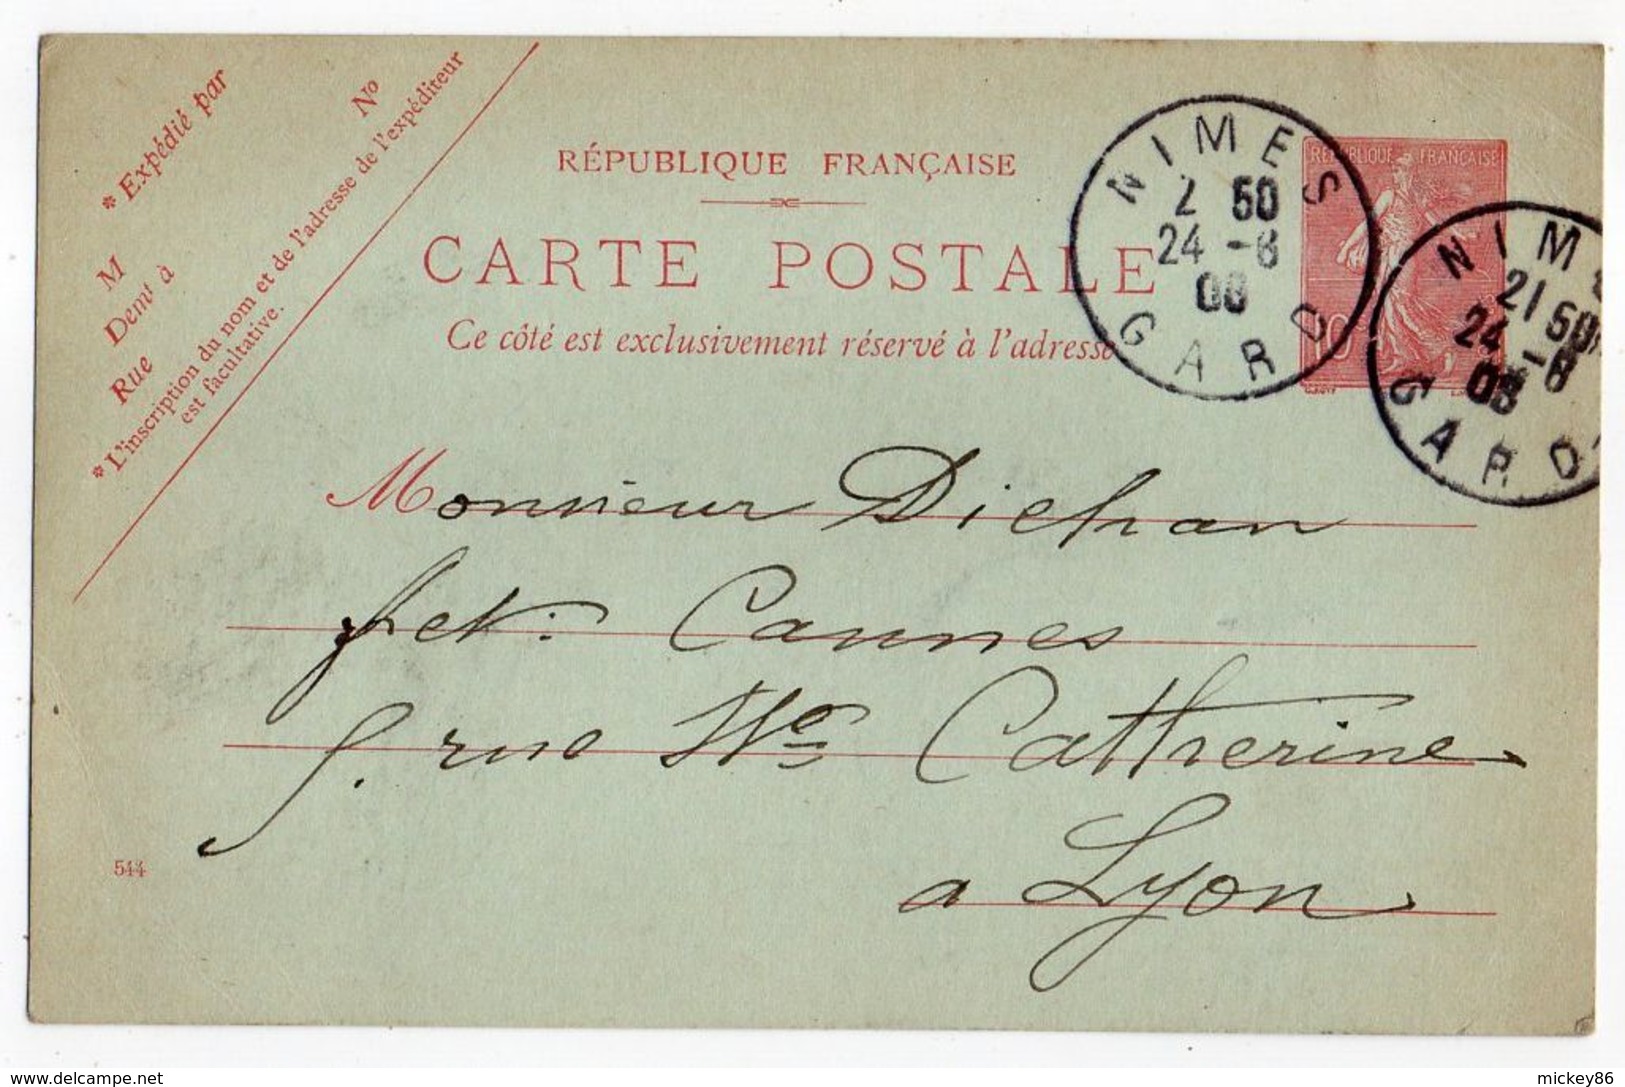 * Expédié par
M
Nº
Demt à
Rue
* L'inscription du nom et de l'adresse de l'expéditeur
est facultative.
RÉPUBLIQUE FRANÇAISE
CARTE POSTALE
Ce côté est exclusivement réservé à l'adresse
NIMES
2 50
24 -8
08
GARD
REPUBLIQUE FRANÇAISE
10
NIMES
21 50
24 -8
08
GARD
Monsieur Dichan
Cannes
5. rue Ste Catherine
a Lyon
544
mickey86
delcampe.net